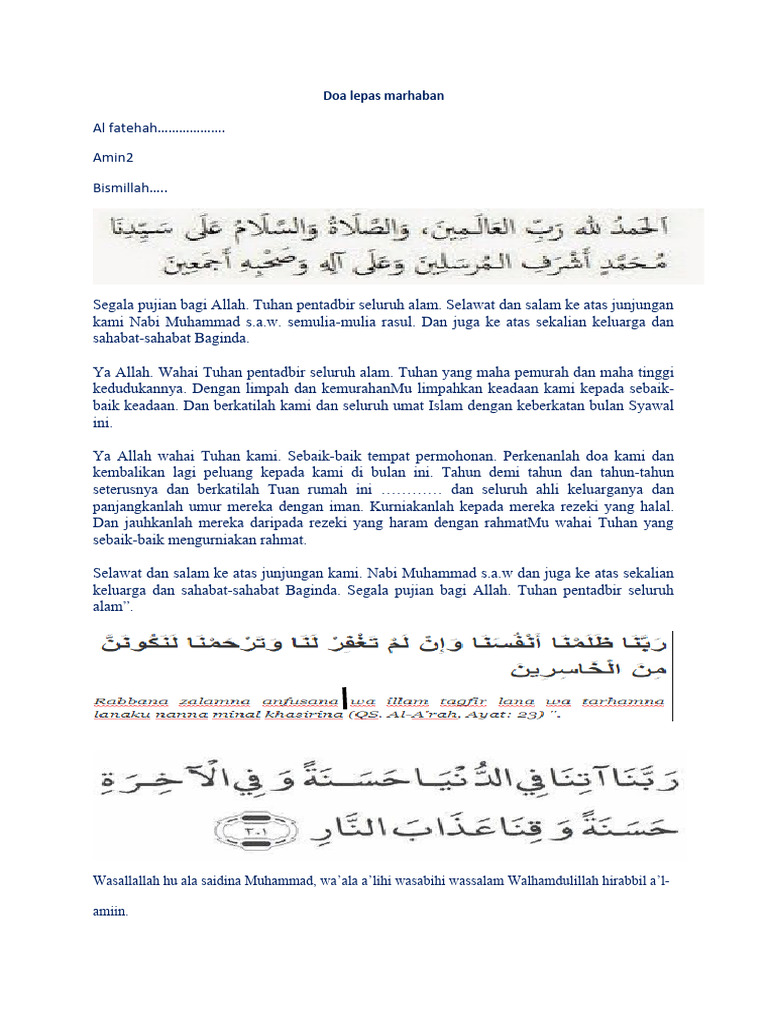 Doa lepas marhaban
Al fatehah……………….
Amin2
Bismillah…..
اَلحَمدُ لله رَبِّ العَالَـمِينَ، وَالصَّلَاةُ وَالسَّلَامُ عَلَى سَـيِّدِنَا
مُـحَمَّدٍ أَشْرَفِ الـمُرسَـلِينَ وَعَلَى آلِهِ وَصَحْبِهِ أَجْمَعِينَ
Segala pujian bagi Allah. Tuhan pentadbir seluruh alam. Selawat dan salam ke atas junjungan
kami Nabi Muhammad s.a.w. semulia-mulia rasul. Dan juga ke atas sekalian keluarga dan
sahabat-sahabat Baginda.
Ya Allah. Wahai Tuhan pentadbir seluruh alam. Tuhan yang maha pemurah dan maha tinggi
kedudukannya. Dengan limpah dan kemurahanMu limpahkan keadaan kami kepada sebaik-
baik keadaan. Dan berkatilah kami dan seluruh umat Islam dengan keberkatan bulan Syawal
ini.
Ya Allah wahai Tuhan kami. Sebaik-baik tempat permohonan. Perkenanlah doa kami dan
kembalikan lagi peluang kepada kami di bulan ini. Tahun demi tahun dan tahun-tahun
seterusnya dan berkatilah Tuan rumah ini ………… dan seluruh ahli keluarganya dan
panjangkanlah umur mereka dengan iman. Kurniakanlah kepada mereka rezeki yang halal.
Dan jauhkanlah mereka daripada rezeki yang haram dengan rahmatMu wahai Tuhan yang
sebaik-baik mengurniakan rahmat.
Selawat dan salam ke atas junjungan kami. Nabi Muhammad s.a.w dan juga ke atas sekalian
keluarga dan sahabat-sahabat Baginda. Segala pujian bagi Allah. Tuhan pentadbir seluruh
alam”.
رَبَّنَا ظَلَمْنَا أَنْفُسَنَا وَإِنْ لَمْ تَغْفِرْ لَنَا وَتَرْحَمْنَا لَنَكُونَنَّ
مِنَ الْخَاسِرِينَ
Rabbana zalamna anfusana wa illam tagfir lana wa tarhamna
lanaku nanna minal khasirina (QS. Al-A’rah, Ayat: 23) ”.
رَبَّنَا آتِنَا فِي الدُّنْيَا حَسَنَةً وَفِي الْآخِرَةِ
حَسَنَةً وَقِنَا عَذَابَ النَّارِ ٢٠١
Wasallallah hu ala saidina Muhammad, wa’ala a’lihi wasabihi wassalam Walhamdulillah hirabbil a’l-
amiin.